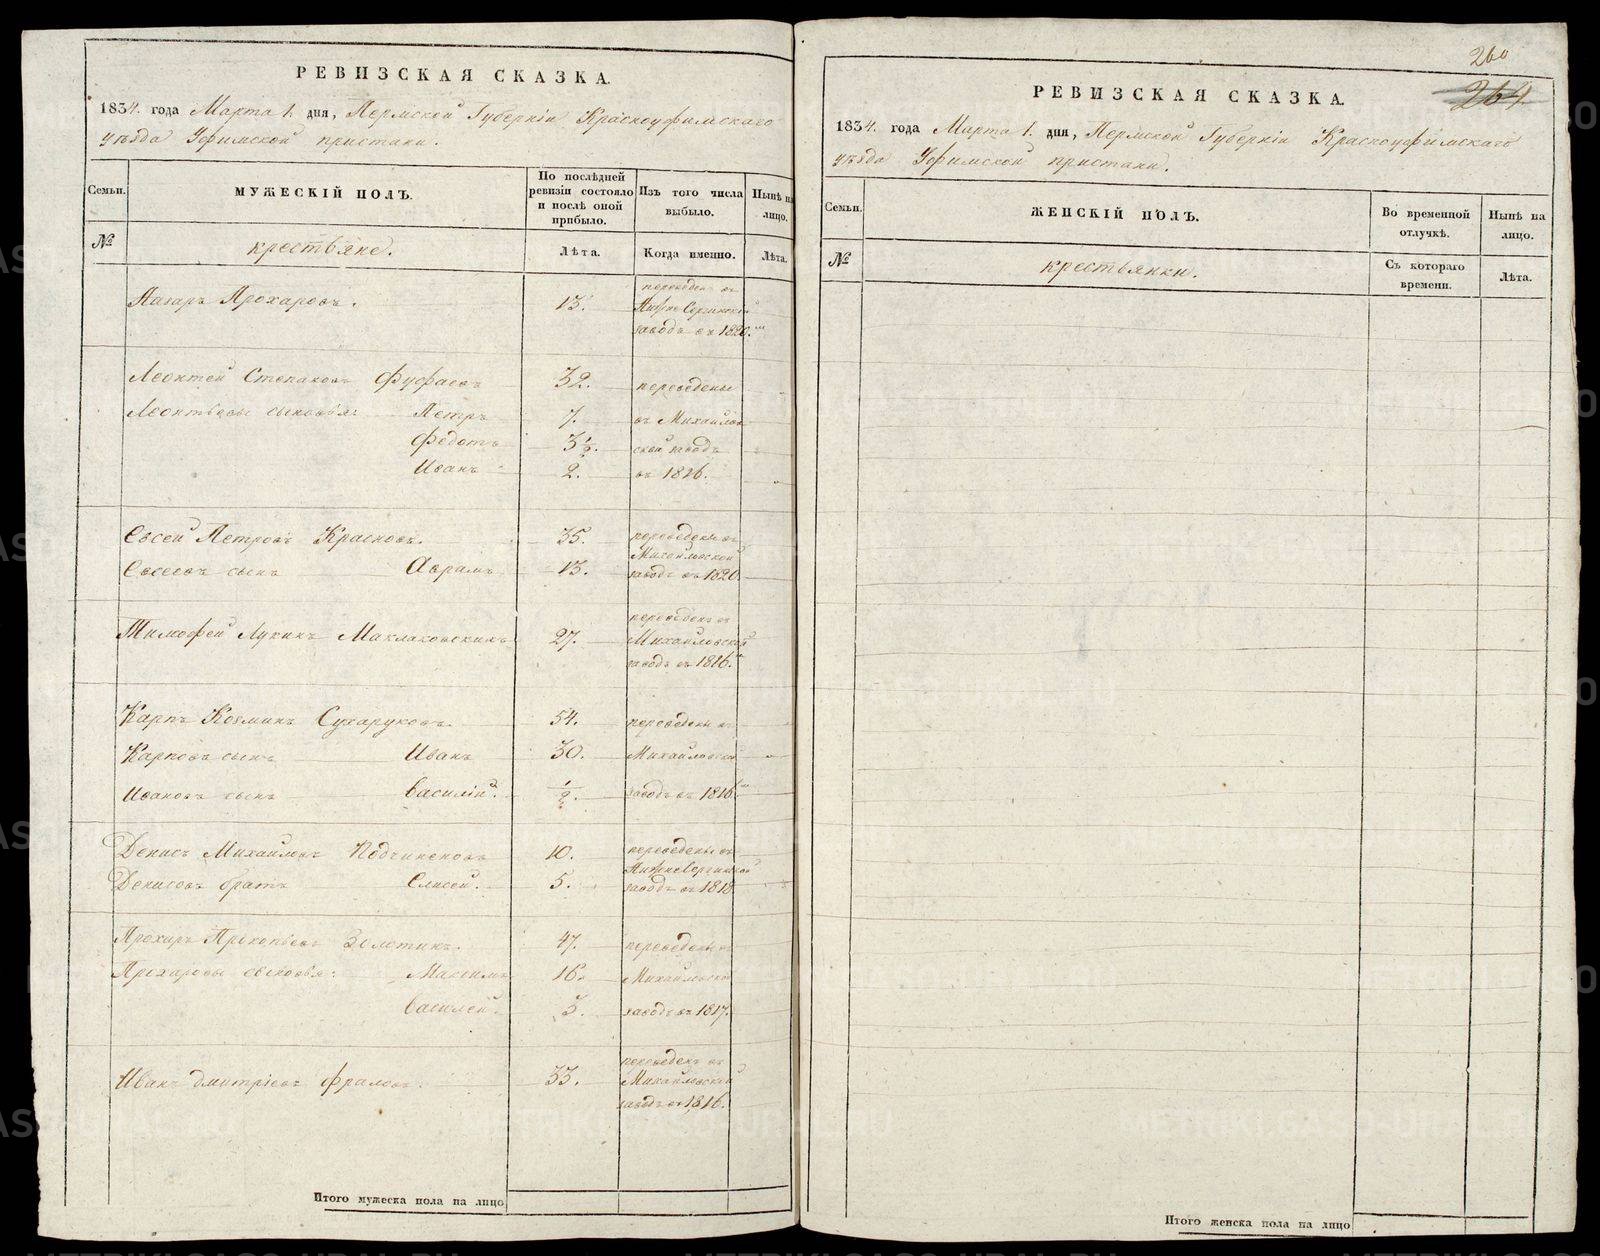 РЕВИЗСКАЯ СКАЗКА.
1834. года Марта 1. дня, Пермской Губерніи Красноуфимскаго
уѣзда Уфимской пристани.
Семьи.
МУЖЕСКІЙ ПОЛЪ.
По послѣдней
ревизіи состояло
и послѣ оной
прибыло.
Изъ того числа
выбыло.
Нынѣ на
лицо.
№
крестьяне.
Лѣта.
Когда именно.
Лѣта.
Лазарь Прохоровъ. 13. переведенъ въ
Нижне Сергинской
заводъ въ 1820.
Леонтей Степановъ Фуфаевъ 32. переведены
Леонтьевы сыновья: Петръ 7. въ Михайлов
Федотъ 3 1/2. скій заводъ
Иванъ 2. въ 1816.
Евсей Петровъ Красновъ. 35. переведены въ
Михайловской
Евсеевъ сынъ Аврамъ 13. заводъ въ 1820.
Тимофей Лукинъ Маклаковскихъ 27. переведенъ въ
Михайловской
заводъ въ 1816.
Карпъ Козминъ Сухоруковъ. 54. переведены въ
Карповъ сынъ Иванъ 30. Михайловской
Ивановъ сынъ Василій. 1/2. заводъ въ 1816.
Денисъ Михайловъ Подчиненовъ 10. переведены въ
Нижнесергинской
Денисовъ братъ Елисей. 5. заводъ въ 1818.
Прохоръ Прокопьевъ Золотинъ. 47. переведены въ
Прохоровы сыновья: Максимъ 16. Михайловской
Василей. 3. заводъ въ 1817.
Иванъ Дмитріевъ Фраловъ. 33. переведенъ въ
Михайловскій
заводъ въ 1816.
Итого мужеска пола на лицо
260
264
РЕВИЗСКАЯ СКАЗКА.
1834. года Марта 1. дня, Пермской Губерніи Красноуфимскаго
уѣзда Уфимской пристани.
Семьи.
ЖЕНСКІЙ ПОЛЪ.
Во временной
отлучкѣ.
Нынѣ на
лицо.
№
крестьянки.
Съ котораго
времени.
Лѣта.
Итого женска пола на лицо
METRIKI.GASO-URAL.RU